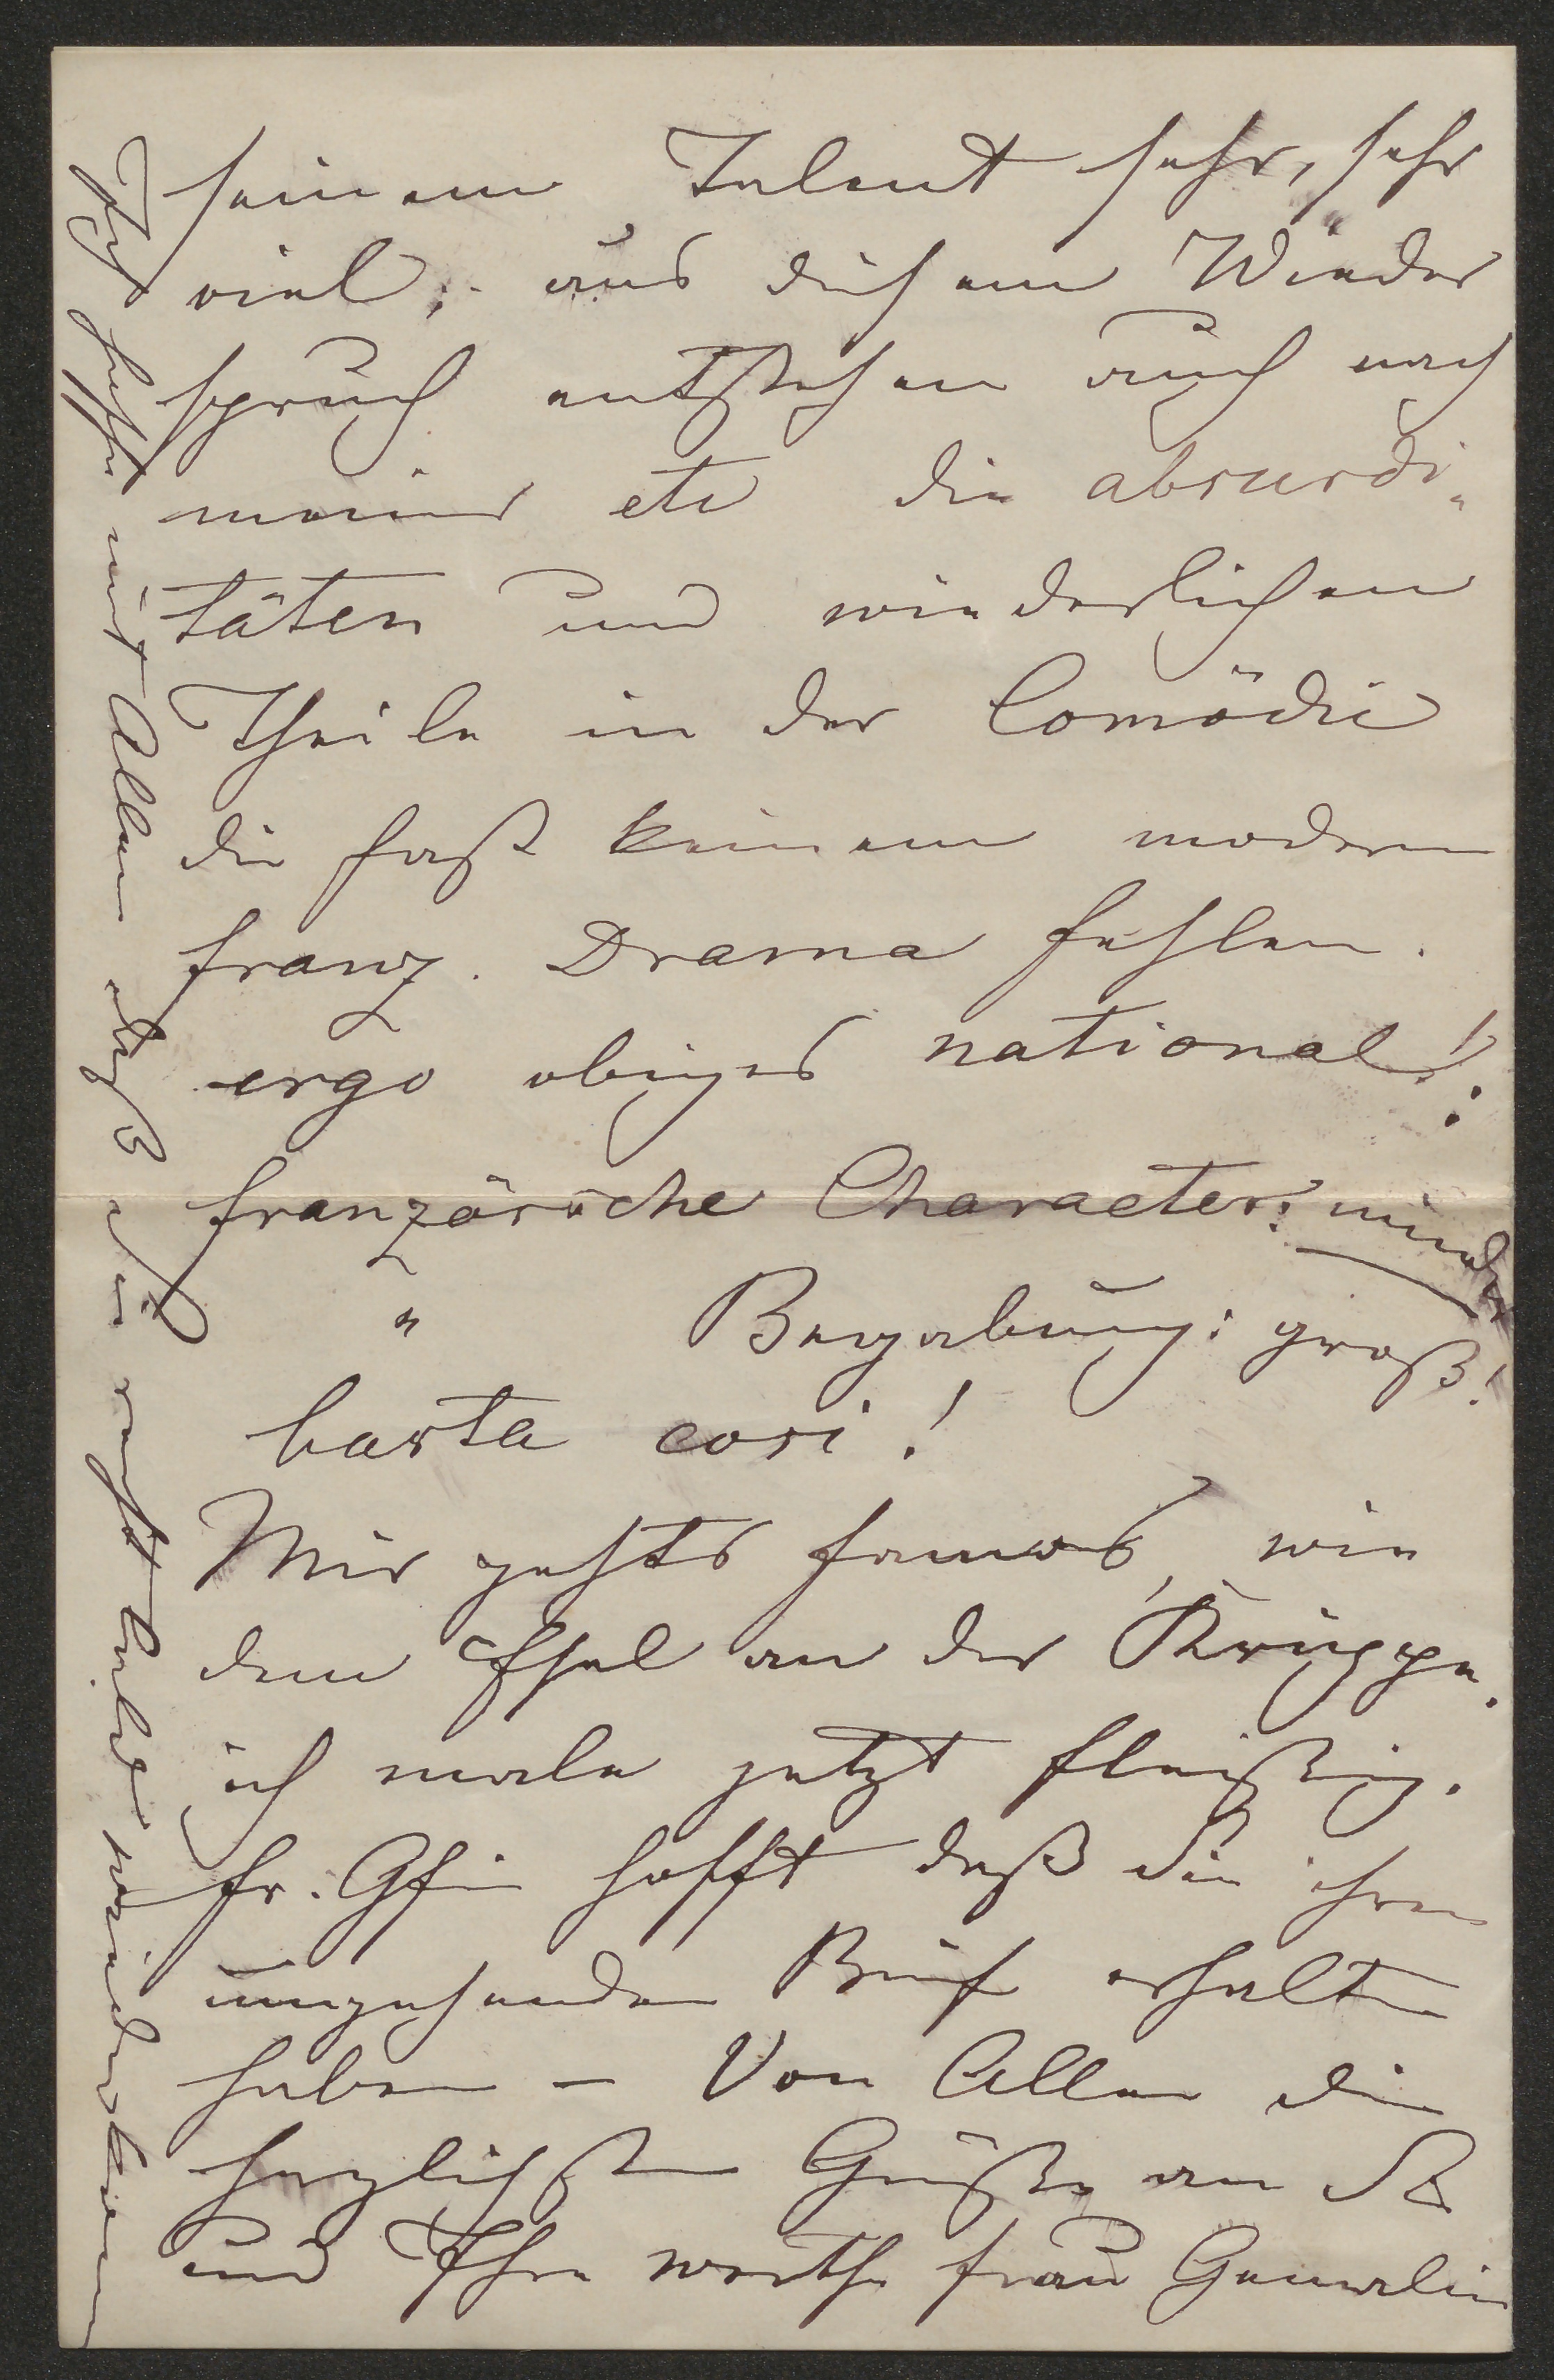 seinem Talent sehr, sehr
viel; aus diesem Wieder
spruch entstehen auch nach
meiner etc die absurdi„
täten und wiederlichen
Theile in der Comödie
die fast keinem modern
franz. Drama fehlen.
ergo obiges national!:
französische Character: minder
" Begabung: groß!
basta cosi!
Mir gehts famos, wie
dem Esel an der Krippe.
ich male jetzt fleißig.
Fr. Gfin hofft daß Sie ihren
umgehenden Brief erhalten
haben – Von Allen die
herzlichsten Grüße an Sie
und Ihre werthe Frau Gemalin
Ich hoffe mit Allen daß Sie recht bald wiederkommen